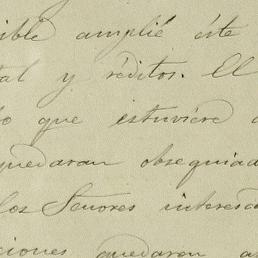 sible amplié éste
tal y réditos. El
lo que estuviere
quedaran obsequiad
los Señores interesad
ciones quedaran a